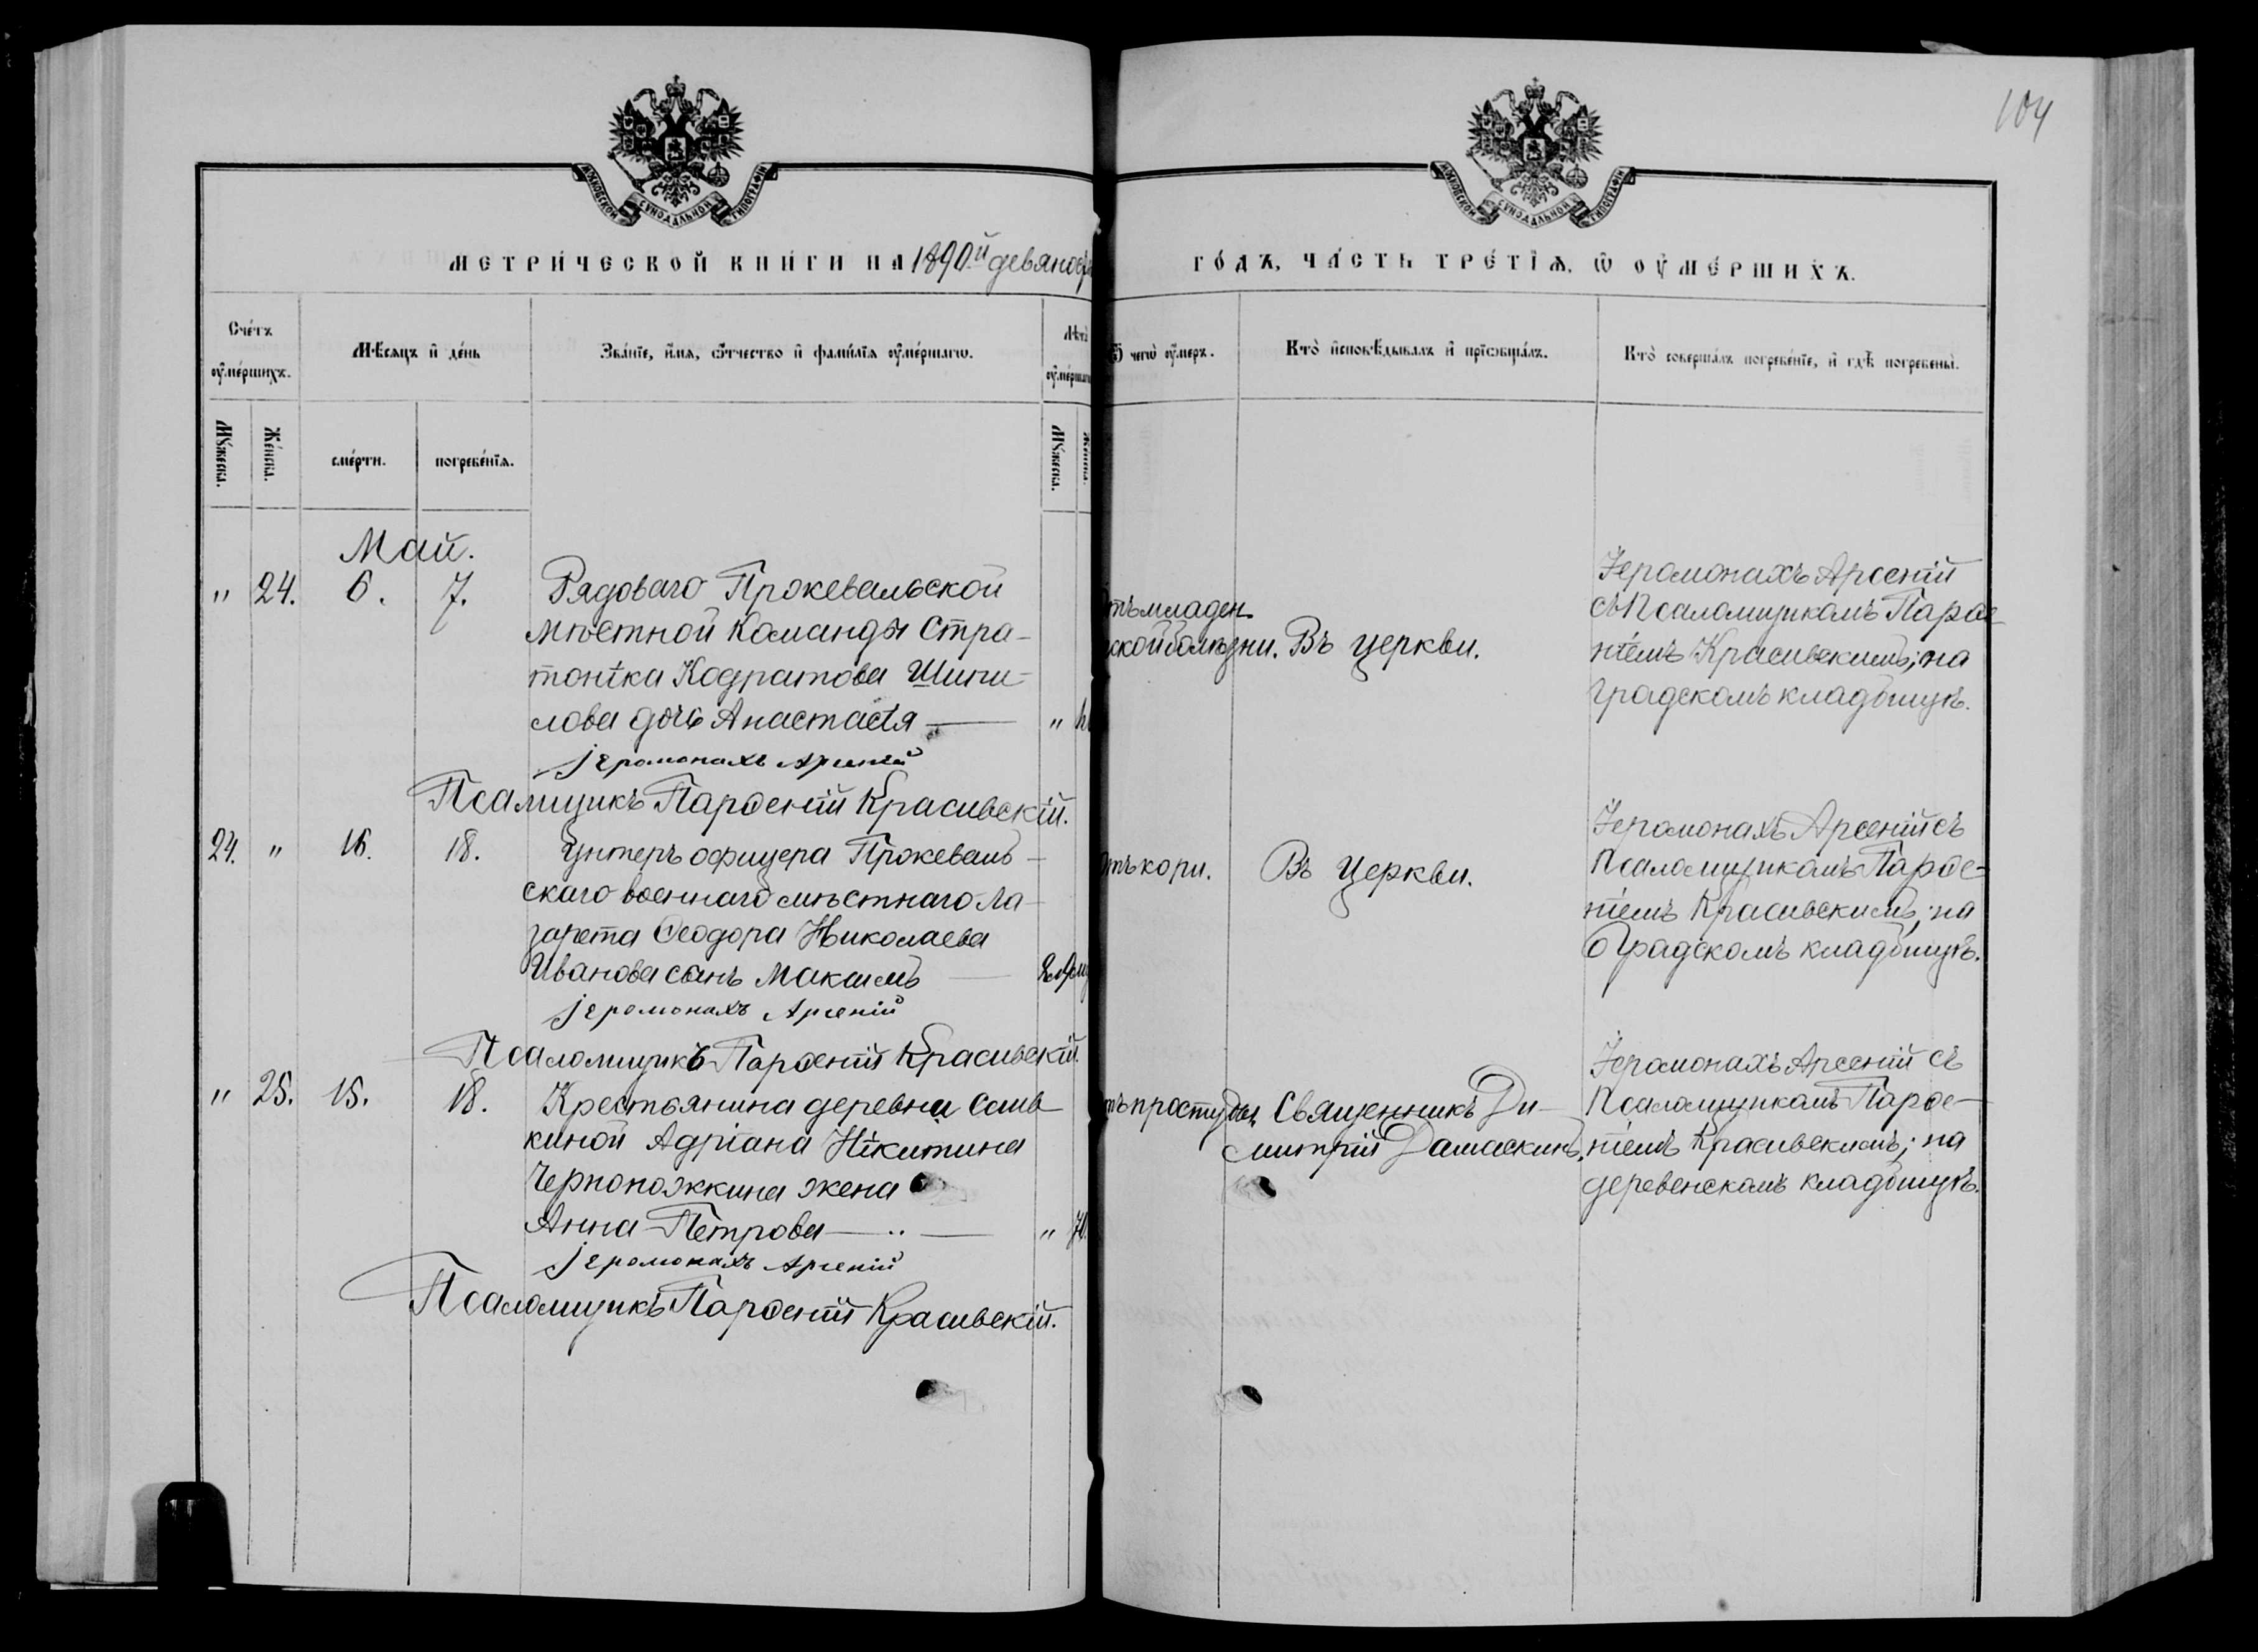 104
МОСКОВСКОЙ СѴНОДАЛЬНОЙ ТИПОГРАФІИ
МОСКОВСКОЙ СѴНОДАЛЬНОЙ ТИПОГРАФІИ
МЕТРИ́ЧЕСКОЙ КНИ́ГИ НА 1890й девяносто
ГО́ДЪ, ЧА́СТЬ ТРЕ́ТІѦ, Ѿ ОУ҆МЕ́РШИХЪ.
Сче́тъ оу҆ме́ршихъ.
Мѣ́сѧцъ и҆ де́нь
Зва́нїе, и҆́мѧ, ѻ҆́тчество и҆ фами́лїѧ оу҆ме́ршагѡ.
Лѣ́та оу҆ме́ршаг
Ѿ чегѡ̀ оу҆́меръ.
Кто̀ и҆сповѣ́дывалъ и҆ прїѡбща́лъ.
Кто̀ соверша́лъ погребе́нїе, и҆ гдѣ̀ погребены̀.
Мꙋ́жеска.
Же́нска.
сме́рти.
погребе́нїѧ.
Мꙋ́жеска.
Май.
" 24. 6. 7.
Рядоваго Прокевальской
мѣстной команды Стра-
тоніка Кодратова Шипи-
лова дочь Анастасія — "
іеромонахъ Арсеній
Псалмщикъ Парѳеній Красивскій.
тъ младен
ской болѣзни.
Въ церкви.
Іеромонахъ Арсеній
съ Псаломщикомъ Парѳе-
ніемъ Красивскимъ; на
градскомъ кладбищѣ.
24. " 16. 18.
Унтеръ офицера Прокеваль-
скаго военнаго мѣстнаго ла-
зарета Ѳеодора Николаева
Иванова сынъ Максимъ —
іеромонахъ Арсеній
Псаломщикъ Парѳеній Красивскій.
отъ кори.
Въ церкви.
Іеромонахъ Арсеній съ
Псаломщикомъ Парѳе-
ніемъ Красивскимъ; на
Градскомъ кладбищѣ.
" 25. 15. 18.
Крестьянина деревни Сомв-
киной Адріана Нікитина
Черноножкина жена
Анна Петрова — " 70.
іеромонахъ Арсеній
Псаломщикъ Парѳеній Красивскій.
тъ простуды
Священникъ Ди-
митрій Дамаскинъ.
Іеромонахъ Арсеній съ
Псаломщикомъ Парѳе-
ніемъ Красивскимъ; на
деревенскомъ кладбищѣ.